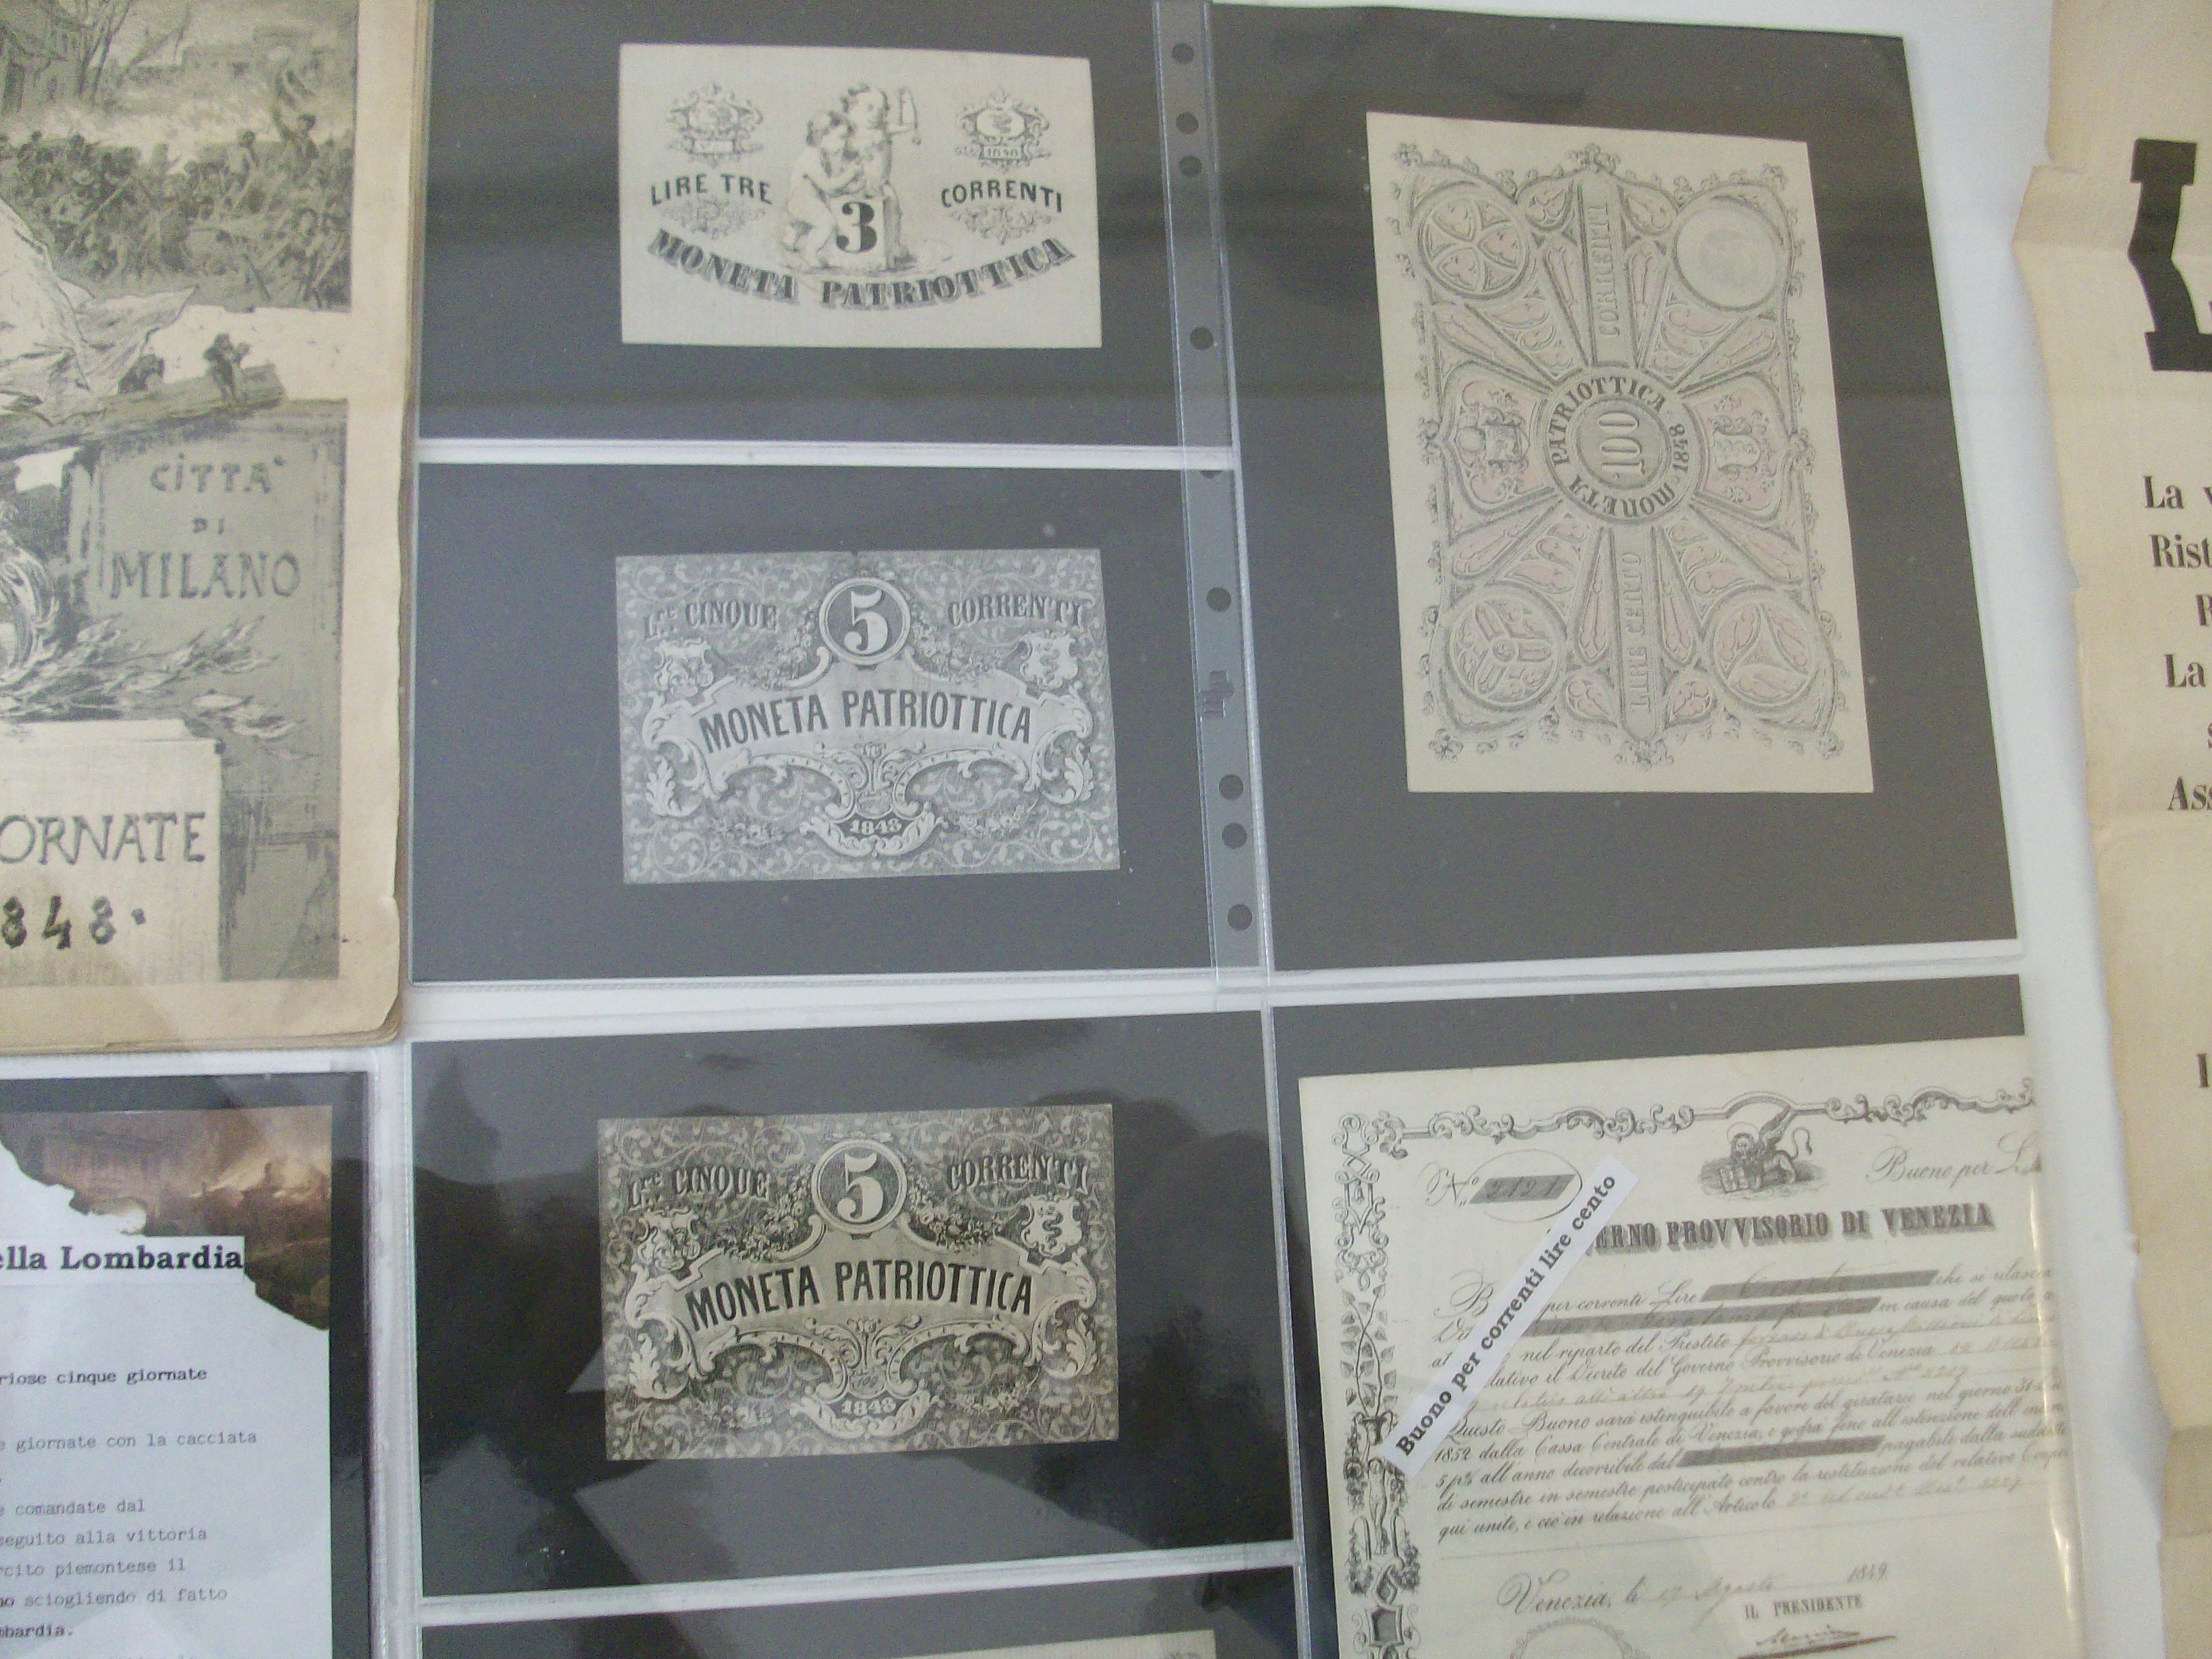 CITTA'
DI
MILANO
ORNATE
848.
ella Lombardia
riose cinque giornate
giornate con la cacciata
comandate dal
seguito alla vittoria
rcito piemontese il
no sciogliendo di fatto
mbardia.
1848
LIRE TRE CORRENTI
3
MONETA PATRIOTTICA
5
L.re CINQUE CORRENTI
MONETA PATRIOTTICA
1848
5
L.re CINQUE CORRENTI
MONETA PATRIOTTICA
1848
CORRENTI
MONETA PATRIOTTICA
100
1848
LIRE CENTO
N.o 2121 Buono per L.
ERNO PROVVISORIO DI VENEZIA
Buono per correnti lire cento
per correnti Lire Cento che si rilascia
in causa del quoto a
nel riparto del Prestito
lativo il Decreto del Governo Provvisorio di Venezia
Questo Buono sarà estinguibile a favore del giratario nel giorno 31
1852 dalla Cassa Centrale di Venezia, e godrà fino all'estinzione dell'
5 p% all'anno decorribile dal pagabile dalla suddetta
di semestre in semestre posticipato contro la restituzione del relativo Coupon
qui unito, e ciò in relazione all'Articolo
Venezia, li Agosto 1849
IL PRESIDENTE
L
La
Rist
R
La
s
Ass
I